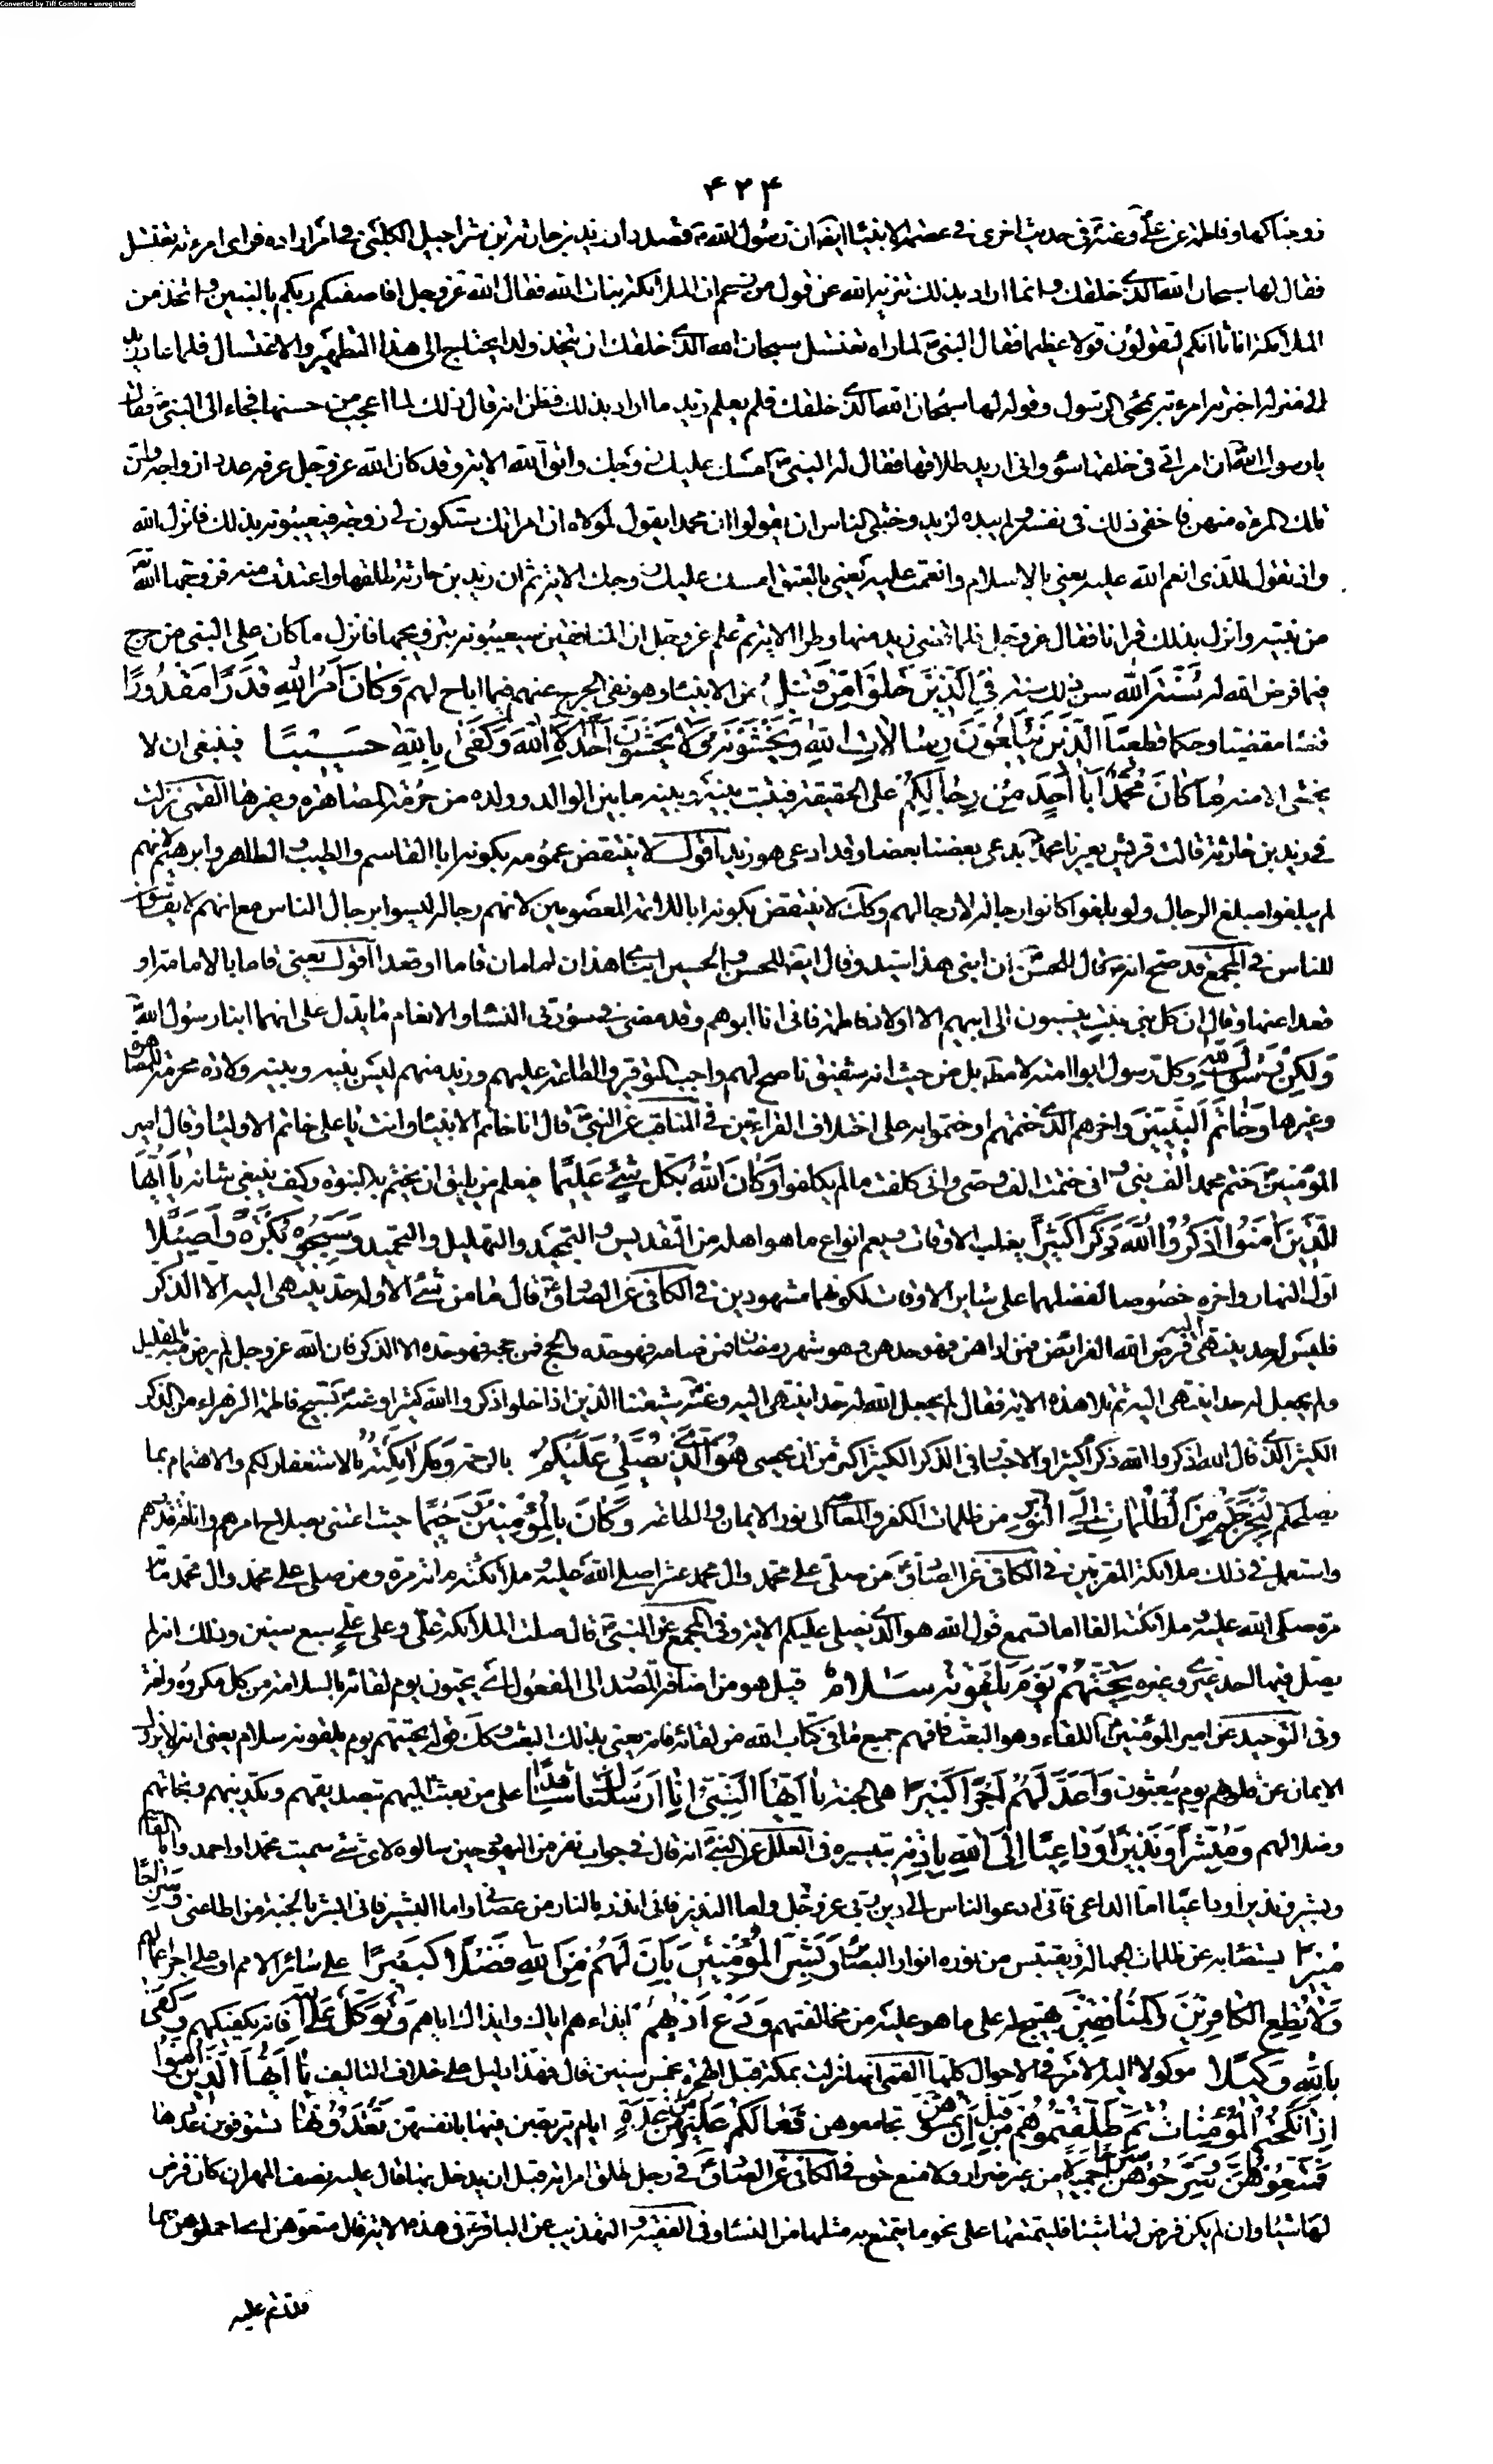 Converted by Tiff Combine - unregistered
۴۲۴
زوجناكها وفاطمة عن علي وعنه في حديث اخرى في عصمة الانبياء ايضا ان رسول الله قصد دار زيد بن حارثة بن شراحيل الكلبي في امر اراده فراى امرءته تغتسل
فقال لها سبحان الله الذي خلقك وانما اراد بذلك تنزيه الله عن قول من زعم ان الملائكة بنات الله فقال الله عز وجل افاصفيكم ربكم بالبنين واتخذ من
الملائكة اناثا انكم لتقولون قولا عظيما فقال النبي لما راه تغتسل سبحان الله الذي خلقك ان يتخذ ولدا يحتاج الى هذا التطهير والاغتسال فلما عاد زيد
الى منزله اخبرته امرءته بمجئ الرسول وقوله لها سبحان الله الذي خلقك فلم يعلم زيد ما اراد بذلك فظن انه قال ذلك لما اعجبه من حسنها فجاء الى النبي فقال
يا رسول الله ان امراتي في خلقها سوء واني اريد طلاقها فقال له النبي امسك عليك زوجك واتق الله الاية وقد كان الله عز وجل عرفه عدد ازواجه وان
تلك المرءة منهن فاخفى ذلك في نفسه ولم يبده لزيد وخشى الناس ان يقولوا ان محمدا يقول لمولاه ان امراتك ستكون لي زوجة فيعيبونه بذلك فانزل الله
واذ تقول للذي انعم الله عليه يعني بالاسلام وانعمت عليه يعني بالعتق امسك عليك زوجك الاية ثم ان زيد بن حارثة طلقها واعتدت منه فزوجها الله
من نبيه وانزل بذلك قرانا فقال عز وجل فلما قضى زيد منها وطرا الاية ثم علم عز وجل ان المنافقين سيعيبونه بتزويجها فانزل ما كان على النبي من حرج
فيما فرض الله له سُنَّةَ اللهِ سن ذلك سنة فِي الَّذِينَ خَلَوْا مِنْ قَبْلُ من الانبياء وهو نفى الحرج عنهم فيما اباح لهم وَكَانَ اَمْرُ اللهِ قَدَرًا مَقْدُورًا
قضاء مقضيا وحكما قطعيا الَّذِينَ يُبَلِّغُونَ رِسَالَاتِ اللهِ وَيَخْشَوْنَهُ وَلَا يَخْشَوْنَ اَحَدًا اِلَّا اللهَ وَكَفَى بِاللهِ حَسِيبًا فينبغي ان لا
يخشى الا منه مَا كَانَ مُحَمَّدٌ اَبَا اَحَدٍ مِنْ رِجَالِكُمْ على الحقيقة فيثبت بينه وبينه ما بين الوالد وولده من حرمة المصاهرة وغيرها القمى نزلت
في زيد بن حارثة قالت قريش يعيرنا محمد يدعى بعضنا بعضا وقد ادعى هو زيدا اقول لا ينتقض عمومه بكونه ابا القاسم والطيب والطاهر وابرهيم لانهم
لم يبلغوا مبلغ الرجال ولو بلغوا كانوا رجاله لا رجالهم وكك لا ينتقض بكونه ابا للائمة المعصومين لانهم رجاله ليسوا برجال الناس مع انهم لا يقاسون
للناس في المجمع قد صح انه قال للحسن ان ابني هذا سيد وقال ايضا للحسن والحسين ابناى هذان امامان قاما او قعدا اقول يعني قاما بالامامة او
قعدا عنها وقال ان كل بني بنت ينسبون الى ابيهم الا اولاد فاطمة فاني انا ابوهم وقد مضى في سورتي النساء والانعام ما يدل على انهما ابنا رسول الله
وَلٰكِنْ رَسُولَ اللهِ وكل رسول ابو امته لا مطلقا بل من حيث انه شفيق ناصح لهم واجب التوقير والطاعة عليهم وزيد منهم ليس بينه وبينه ولادة محرمة للمصاهرة
وغيرها وَخَاتَمَ النَّبِيِّينَ واخرهم الذي ختمهم او ختموا به على اختلاف القراءتين في المناقب عن النبي قال انا خاتم الانبياء وانت يا علي خاتم الاولياء وقال امير
المؤمنين ختم محمد الف نبي واني ختمت الف وصى واني كلفت ما لم يكلفوا وَكَانَ اللهُ بِكُلِّ شَيْءٍ عَلِيمًا فيعلم من يليق ان يختم به النبوة وكيف ينبغي شانه يَا اَيُّهَا
الَّذِينَ اٰمَنُوا اذْكُرُوا اللهَ ذِكْرًا كَثِيرًا يغلب الاوقات ويعم انواع ما هو اهله من التقديس والتمجيد والتهليل والتحميد وَسَبِّحُوهُ بُكْرَةً وَاَصِيلًا
اول النهار واخره خصوصا لفضلهما على سائر الاوقات لكونهما مشهودين في الكافي عن الصادق قال ما من شئ الا وله حد ينتهى اليه الا الذكر
فليس له حد ينتهى اليه فرض الله الفرائض فمن اداهن فهو حدهن وهو شهر رمضان فمن صامه فهو حده والحج فمن حج فهو حده الا الذكر فان الله عز وجل لم يرض منه بالقليل
ولم يجعل له حدا ينتهى اليه ثم تلا هذه الاية فقال لم يجعل الله له حدا ينتهى اليه وعنه شيعتنا الذين اذا خلوا ذكروا الله كثيرا وعنه تسبيح فاطمة الزهراء من الذكر
الكثير الذي قال الله اذكروا الله ذكرا كثيرا والاخبار في الذكر الكثير اكثر من ان يحصى هُوَ الَّذِي يُصَلِّي عَلَيْكُمْ بالرحمة وَمَلَائِكَتُهُ بالاستغفار لكم والاهتمام بما
يصلحكم لِيُخْرِجَكُمْ مِنَ الظُّلُمَاتِ اِلَى النُّورِ من ظلمات الكفر والمعاصي الى نور الايمان والطاعة وَكَانَ بِالْمُؤْمِنِينَ رَحِيمًا حيث اعتنى بصلاح امرهم وانافة قدرهم
واستعمل في ذلك ملائكته المقربين في الكافي عن الصادق من صلى على محمد وال محمد عشرا صلى الله عليه وملائكته مائة مرة ومن صلى على محمد وال محمد مائة
مرة صلى الله عليه وملائكته الفا اما تسمع قول الله هو الذي يصلى عليكم الاية وفي المجمع عن النبي قال صلت الملائكة علي وعلى علي سبع سنين وذلك انه لم
يصل فيها احد غيري وغيره تَحِيَّتُهُمْ يَوْمَ يَلْقَوْنَهُ سَلَامٌ قيل هو من اضافة المصدر الى المفعول اي يحيون يوم لقائه بالسلامة من كل مكروه وافة
وفي التوحيد عن امير المؤمنين اللقاء هو البعث فافهم جميع ما في كتاب الله من لقائه فانه يعني بذلك البعث وكك قوله تحيتهم يوم يلقونه سلام يعني انه لا يزول
الايمان عن قلوبهم يوم يبعثون وَاَعَدَّ لَهُمْ اَجْرًا كَبِيرًا هي الجنة يَا اَيُّهَا النَّبِيُّ اِنَّا اَرْسَلْنَاكَ شَاهِدًا على من بعثت اليهم بتصديقهم وتكذيبهم ونجاتهم
وضلالهم وَمُبَشِّرًا وَنَذِيرًا وَدَاعِيًا اِلَى اللهِ بِاِذْنِهِ بتيسيره في العلل عن النبي انه قال في جواب نفر من اليهود حين سالوه لاي شئ سميت محمدا واحمد وابا القاسم
وبشيرا ونذيرا وداعيا اما الداعي فاني ادعو الناس الى دين ربي عز وجل واما النذير فاني انذر بالنار من عصاني واما البشير فاني ابشر بالجنة من اطاعني وَسِرَاجًا
مُنِيرًا يستضاء به عن ظلمات الجهالة ويقتبس من نوره انوار البصائر وَبَشِّرِ الْمُؤْمِنِينَ بِاَنَّ لَهُمْ مِنَ اللهِ فَضْلًا كَبِيرًا على سائر الامم او على اجر اعمالهم
وَلَا تُطِعِ الْكَافِرِينَ وَالْمُنَافِقِينَ تهييج له على ما هو عليه من مخالفتهم وَدَعْ اَذَاهُمْ ايذاءهم اياك وايذاك اياهم وَتَوَكَّلْ عَلَى اللهِ فانه يكفيكهم وَكَفَى
بِاللهِ وَكِيلًا موكولا اليه الامر في الاحوال كلها القمى انها نزلت بمكة قبل الهجرة بخمس سنين قال فهذا دليل على خلاف التاليف يَا اَيُّهَا الَّذِينَ اٰمَنُوا
اِذَا نَكَحْتُمُ الْمُؤْمِنَاتِ ثُمَّ طَلَّقْتُمُوهُنَّ مِنْ قَبْلِ اَنْ تَمَسُّوهُنَّ تجامعوهن فَمَا لَكُمْ عَلَيْهِنَّ مِنْ عِدَّةٍ ايام يتربصن فيها بانفسهن تَعْتَدُّونَهَا تستوفون عددها
فَمَتِّعُوهُنَّ وَسَرِّحُوهُنَّ سَرَاحًا جَمِيلًا من غير ضرار ولا منع حق في الكافي عن الصادق في رجل طلق امراته قبل ان يدخل بها قال عليه نصف المهر ان كان فرض
لها شيئا وان لم يكن فرض لها شيئا فليمتعها على نحو ما يتمتع به مثلها من النساء وفي الفقيه والتهذيب عن الباقر في هذه الاية قال متعوهن اي احملوهن بما
قدرتم عليه